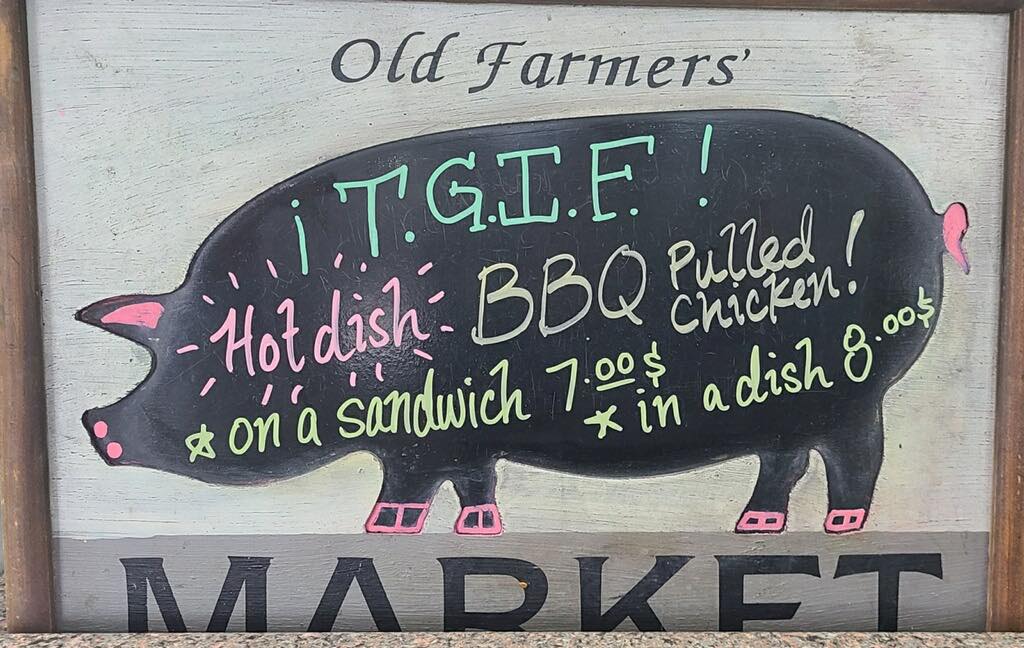 Old Farmers'
¡ T.G.I.F. !
Hot dish BBQ Pulled
Chicken!
☆ on a sandwich 7.00$
☆ in a dish 8.00$
MARKET